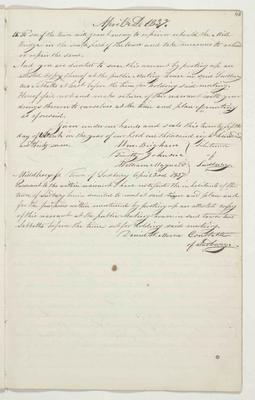 April 2d 1837.
15. To see if the town will grant money to repair or rebuild the Mill
bridge in the south part of the town and take measures to rebuild
or repair the same.
And you are directed to serve this warrant by posting up an
attested copy thereof at the public Meeting house in said Sudbury
one Sabbath at least before the time for holding said meeting.
Hereof fail not and make return of this warrant with your
doings thereon to ourselves at the time and place of meeting
as aforesaid.
Given under our hands and seals this
day of March in the year of our Lord one thousand eight hundred
and thirty seven.
Selectmen
Johnson
William Sudbury
Middlesex ss. Town of Sudbury April 2nd 1837
Pursuant to the within warrant I have notified the inhabitants of the
town of Sudbury herein directed to meet at said time and place and
for the purposes within mentioned by posting up an attested copy
of this warrant at the public Meeting house in said town one
Sabbath before the time set for holding said meeting.
Daniel Constable
of Sudbury